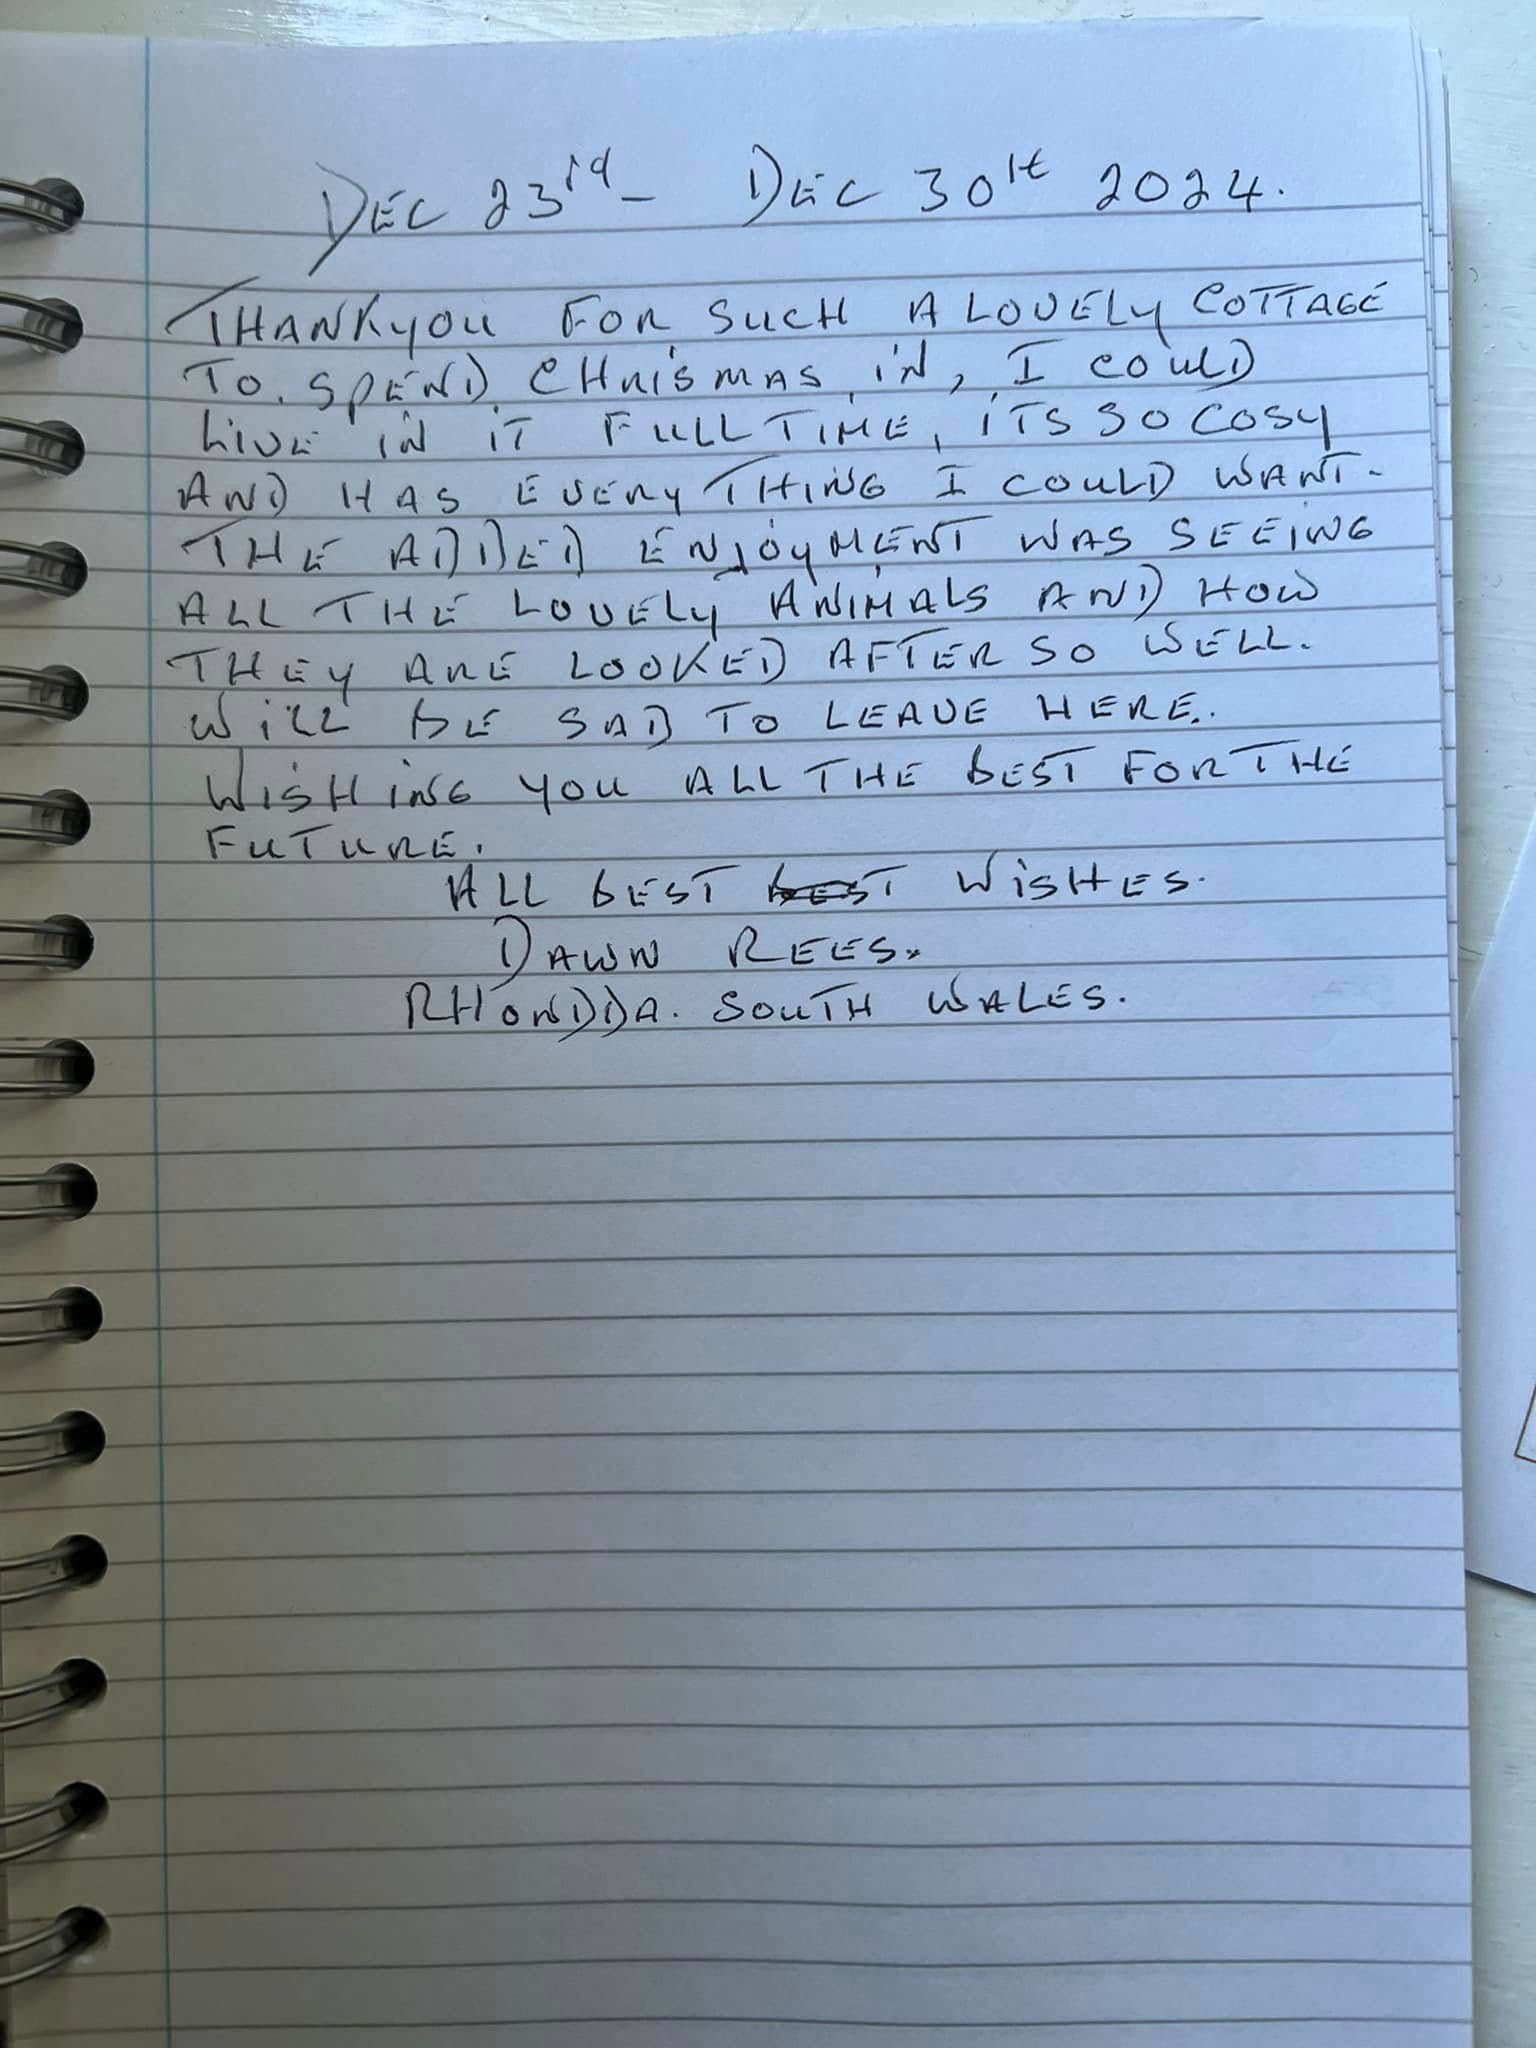 DEC 23rd - DEC 30th 2024.
THANKYOU FOR SUCH A LOVELY COTTAGE
TO. SPEND CHRISMAS IN, I COULD
LIVE IN IT FULL TIME, ITS SO COSY
AND HAS EVERY THING I COULD WANT-
THE ADDED ENJOYMENT WAS SEEING
ALL THE LOVELY ANIMALS AND HOW
THEY ARE LOOKED AFTER SO WELL.
WILL BE SAD TO LEAVE HERE..
WISHING YOU ALL THE BEST FOR THE
FUTURE.
ALL BEST BEST WISHES.
DAWN REES.
RHONDDA. SOUTH WALES.